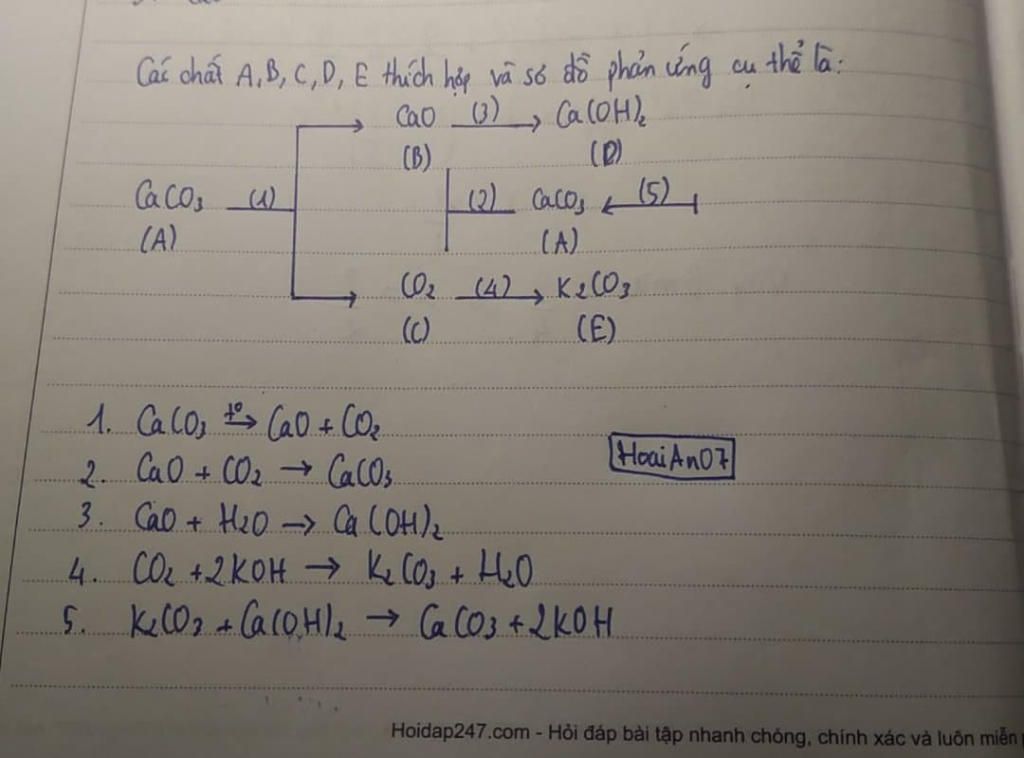 Các chất A, B, C, D, E thích hợp và sơ đồ phản ứng cụ thể là:
CaO (3) Ca(OH)₂
(B) (D)
CaCO₃ (1) (2) CaCO₃ (5)
(A) (A)
CO₂ (4) K₂CO₃
(C) (E)
1. CaCO₃ t⁰→ CaO + CO₂
HoaiAn07
2. CaO + CO₂ → CaCO₃
3. CaO + H₂O → Ca(OH)₂
4. CO₂ + 2KOH → K₂CO₃ + H₂O
5. K₂CO₃ + Ca(OH)₂ → CaCO₃ + 2KOH
Hoidap247.com - Hỏi đáp bài tập nhanh chóng, chính xác và luôn miễn